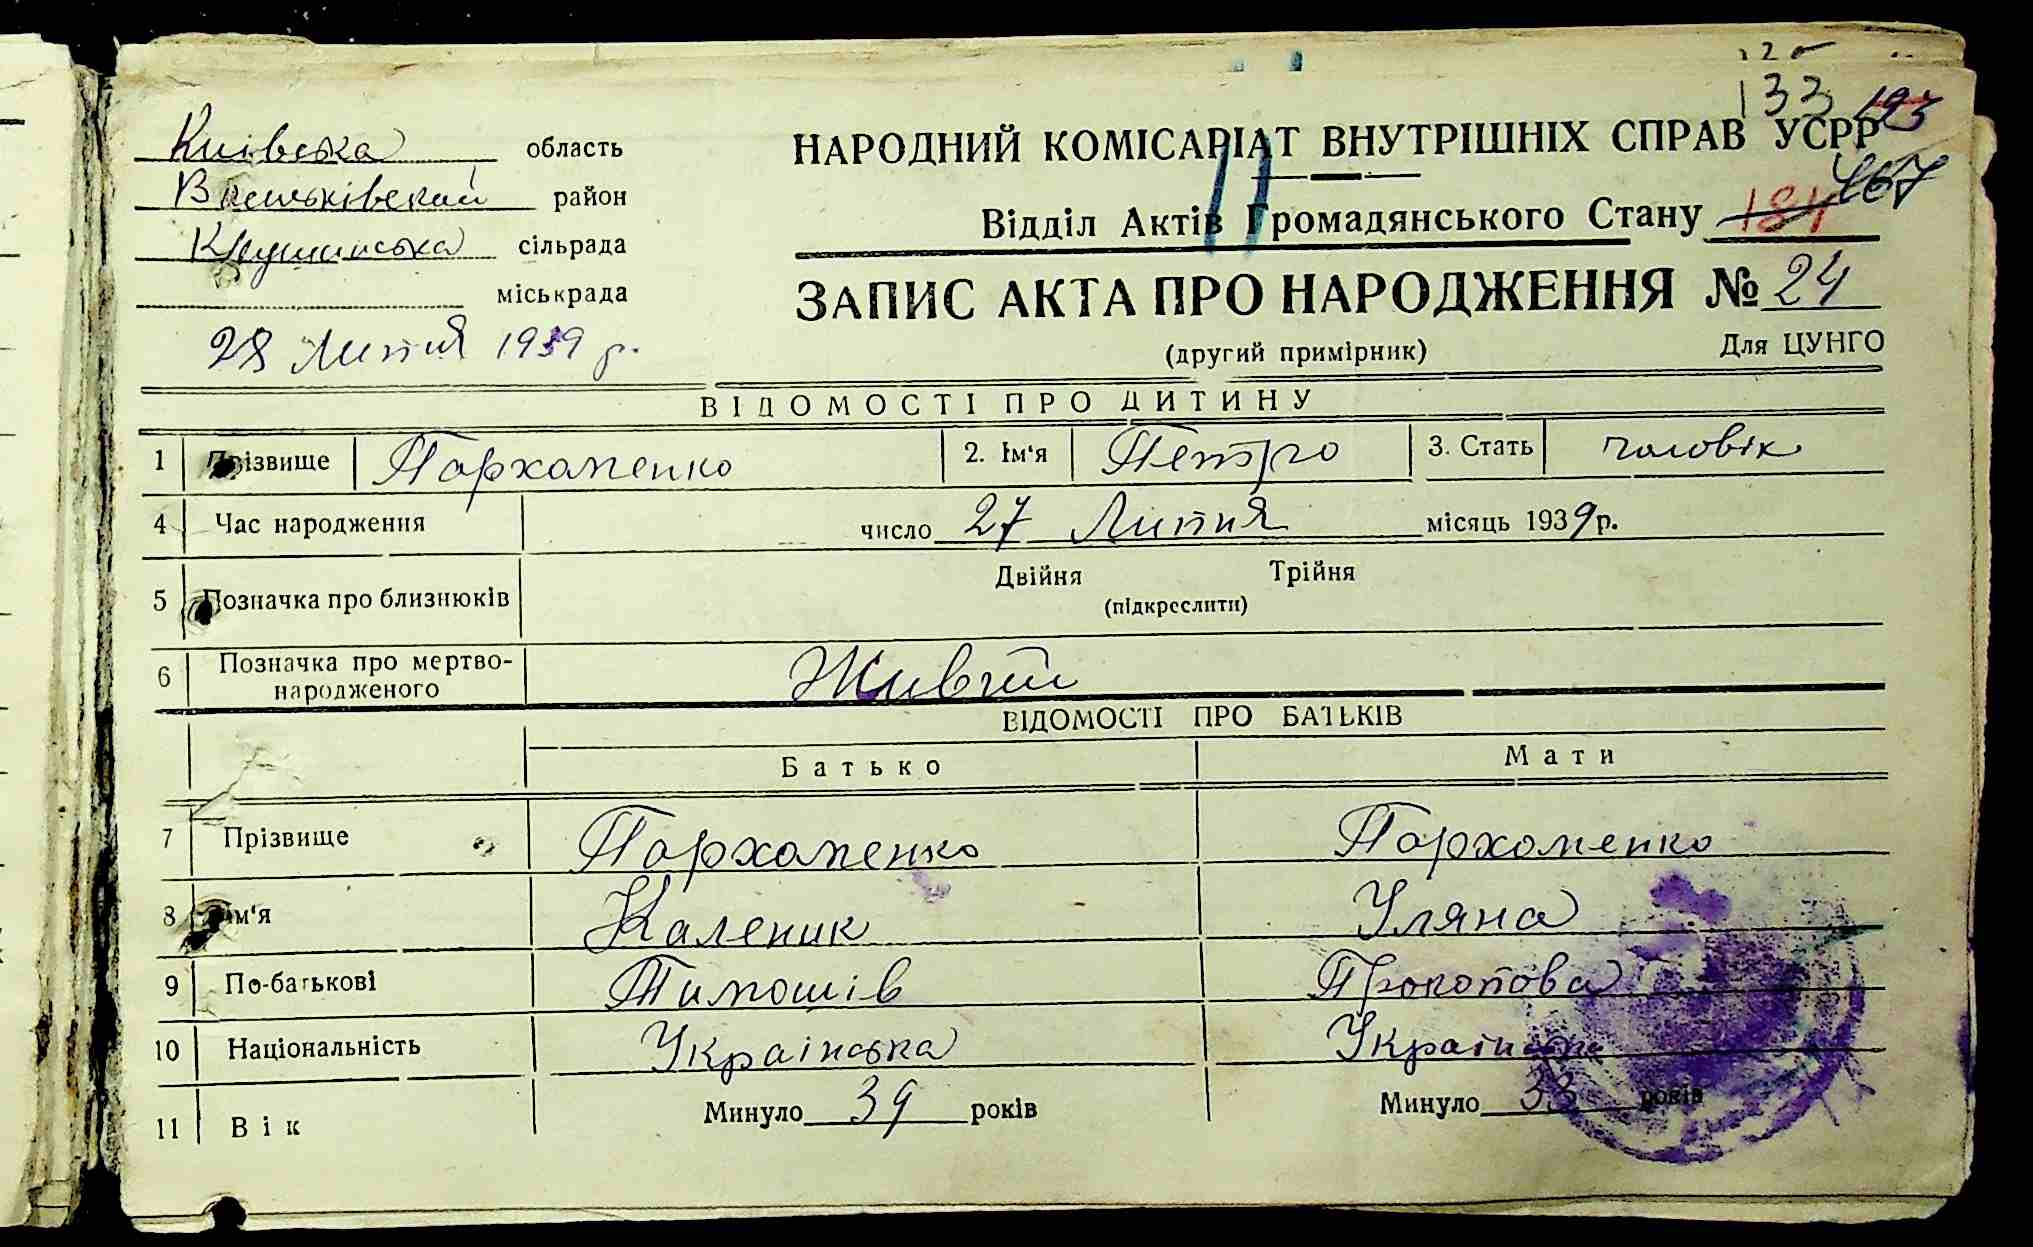 133 193
Київська область
НАРОДНИЙ КОМІСАРІАТ ВНУТРІШНІХ СПРАВ УСРР
Васильківський район
467
Відділ Актів Громадянського Стану 181
сільрада
міськрада
ЗАПИС АКТА ПРО НАРОДЖЕННЯ № 24
28 Липня 1939 р.
(другий примірник) Для ЦУНГО
ВІДОМОСТІ ПРО ДИТИНУ
1 Прізвище Пархоменко 2. Ім'я Петро 3. Стать чоловік
4 Час народження число 27 Липня місяць 1939 р.
Двійня Трійня
5 Позначка про близнюків (підкреслити)
6 Позначка про мертво-
народженого Живий
ВІДОМОСТІ ПРО БАТЬКІВ
Батько Мати
7 Прізвище Пархоменко Пархоменко
8 Ім'я Каленик Уляна
9 По-батькові Тимошів Прокопова
10 Національність Українська Українська
11 Вік Минуло 39 років Минуло 33 років